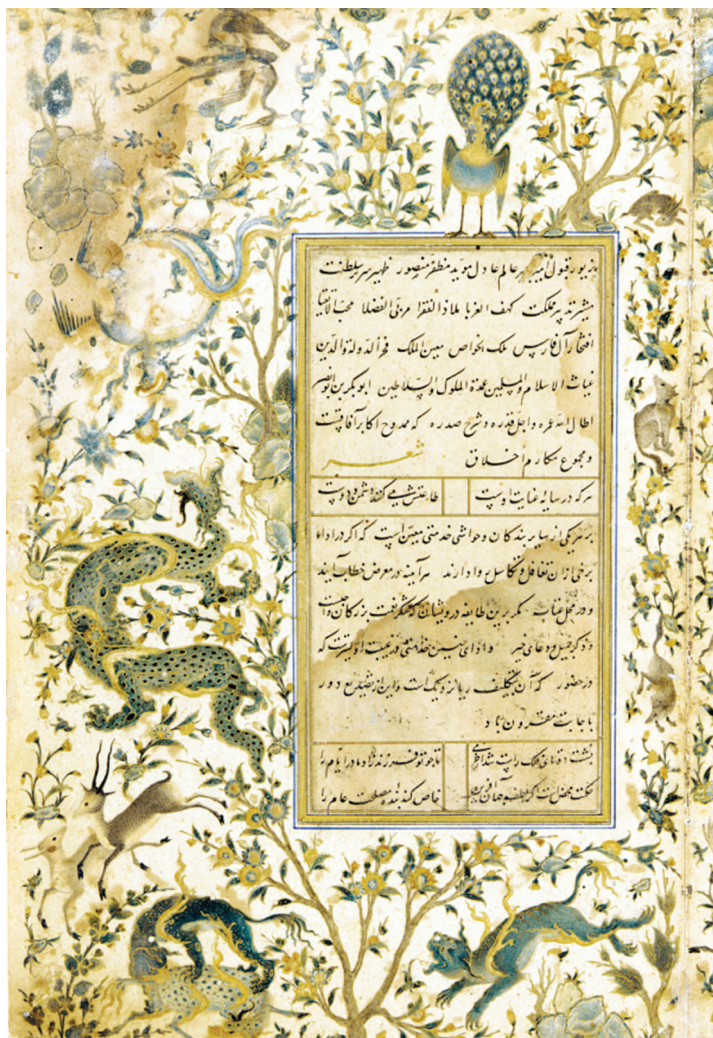 بزیور قبول امیر کبیر عالم عادل موید مظفر منصور ظهیر سریر سلطنت
مشیر تدبیر مملکت کهف الغربا ملاذ الفقرا مربی الفضلا محب الاتقیا
افتخار آل فارس ملک الخواص یمین الملک فخر الدولة والدین
غیاث الاسلام والمسلمین عمدة الملوک والسلاطین ابوبکر بن ابو نصر
اطال الله عمره واجل قدره وشرح صدره که ممدوح اکابر آفاقست
ومجموع مکارم اخلاق شعر
هر که در سایه عنایت اوست طاعتش دشمن و دوست
بر هر یکی از سایر بندکان وحواشی خدمتی معین است که اکر در ادای
برخی از آن تغافل وتکاسل روا دارند هر آینه در معرض خطاب آیند
ودر محل عتاب مکر برین طایفه درویشان که شکر نعمت بزرکان واجبست
وذکر جمیل ودعای خیر وادای چنین خدمتی در غیبت اولیترست که
در حضور که آن بتکلف نزدیک است واین از تصنع دور
باجابت مقرون باد
پشت دوتای فلک راست شد از خرمی تا چو تو فرزند زاد مادر ایام را
حکمت محض است اکر لطف جهان آفرین خاص کند بنده مصلحت عام را